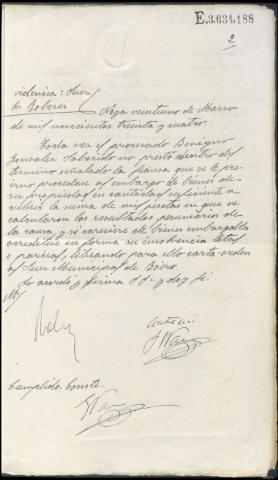 E.3.634.188
2
Providencia: Juez
Sr. Roberes
Noya veintiuno de Marzo
de mil novecientos treinta y cuatro.
Toda vez el procesado Benigno
Gonzalez Saborido no prestó dentro del
termino señalado la fianza que se le
previno procedase al embargo de bienes de
su propiedad en cantidad suficiente a
cubrir la suma de mil pesetas en que se
calcularon los resultados pecuniarios de
la causa, y si careciere de bienes embargables
acreditese en forma su insolvencia total
o parcial, librando para ello carta-orden
al Juez Municipal de Boiro.
Lo acordó y firma S.S. y doy fe.
Ante mi
Cumplido. Conste.